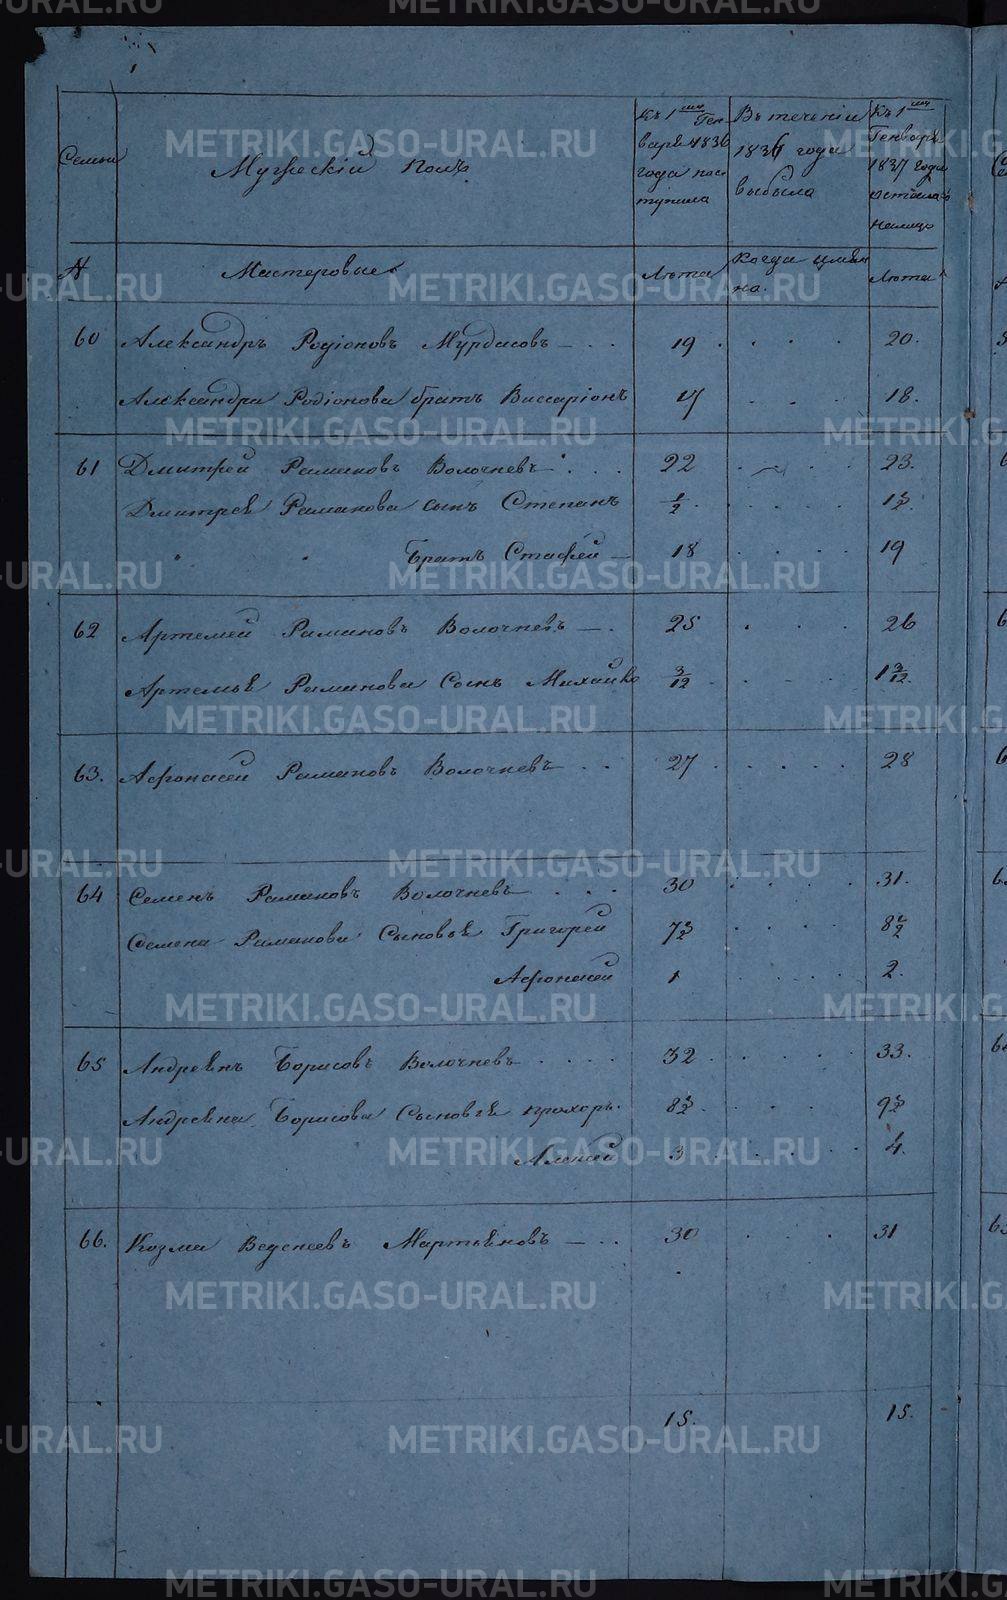 Семьи
Мужескій полъ
Къ 1му Генваря 1836 года поступила
Въ теченіи 1836 года выбыла
Къ 1му Генваря 1837 года остаила налицо
№ Мастеровые Лѣта Когда именно. Лѣта
60 Александръ Родіоновъ Мурдасовъ — . . 19 . . . . 20.
Александра Родіонова братъ Виссаріонъ 17 . . . 18.
61 Дмитрей Рамановъ Волочневъ . . . 22 . . . 23.
Дмитрея Раманова сынъ Степанъ 1/2 . . . . 1 1/2.
" " Братъ Стафей — 18 . . . . 19
62 Артемей Рамановъ Волочневъ — . 25 . . . 26
Артемья Раманова Сынъ Михайло 3/12 . . . . 1 3/12.
63. Афонасей Рамановъ Волочневъ . . 27 . . . . . 28
64 Семенъ Рамановъ Волочневъ . . . 30 . . . . 31.
Семена Раманова Сыновья Григорей 7 1/2 . . . . 8 1/2
Афонасей 1 . . . . 2.
65 Андреянъ Борисовъ Волочневъ . . . . 32 . . . . . 33.
Андреяна Борисова Сыновья прохоръ. 8 1/2 . . . . 9 1/2
Алексей 3 . . . . . 4.
66. Козма Веденеевъ Мартьяновъ — . . 30 . . . 31
15. 15.
METRIKI.GASO-URAL.RU